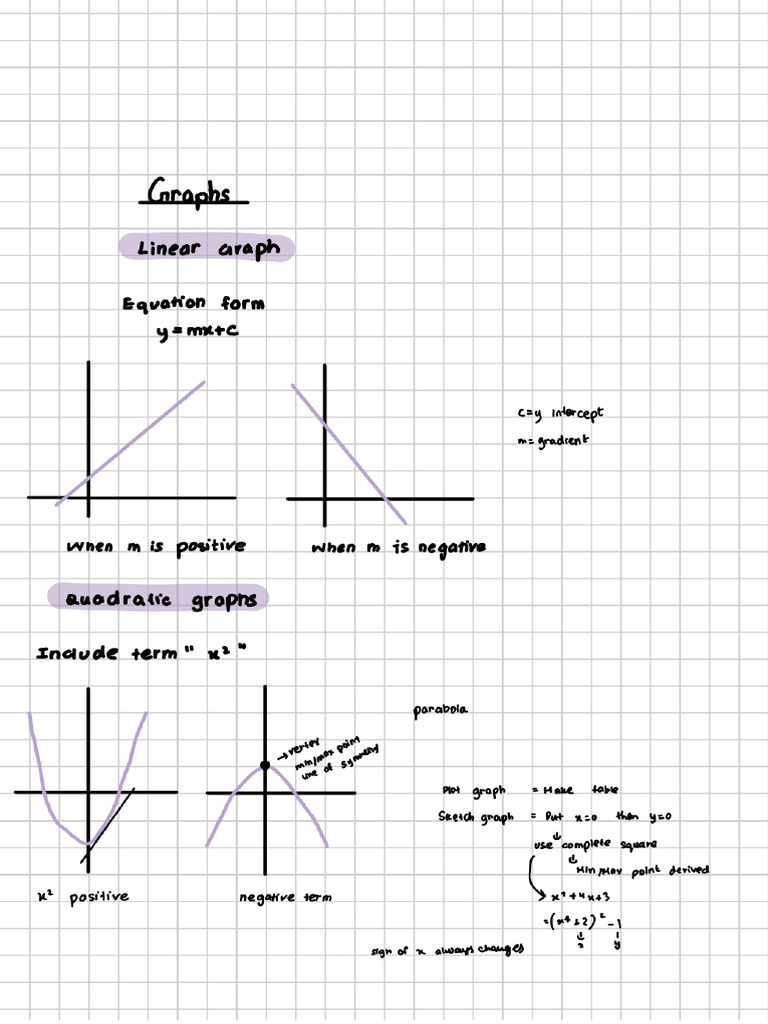 Graphs
Linear Graph
Equation form
y = mx+c
c=y intercept
m= gradient
When m is positive
When m is negative
Quadratic graphs
Include term " x² "
parabola
→ vertex
min/max point
line of symmetry
Plot graph = Make table
Sketch graph = Put x=0 then y=0
↓
use complete square
↓
Min/Max point derived
x² positive
negative term
x²+4x+3
-1
↓
x
y
sign of x always changes